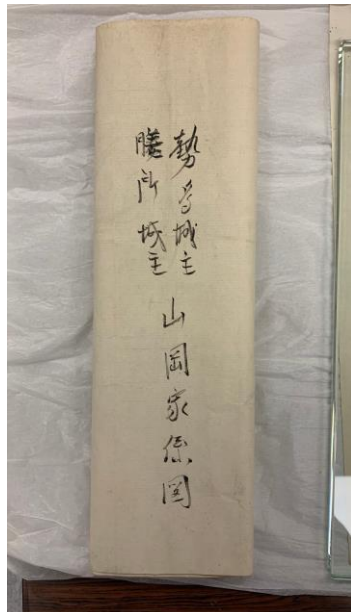 勢多城主
膳所城主
山岡家係図